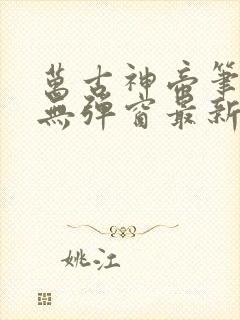 萬古神帝筆
無彈窗最新
姚江